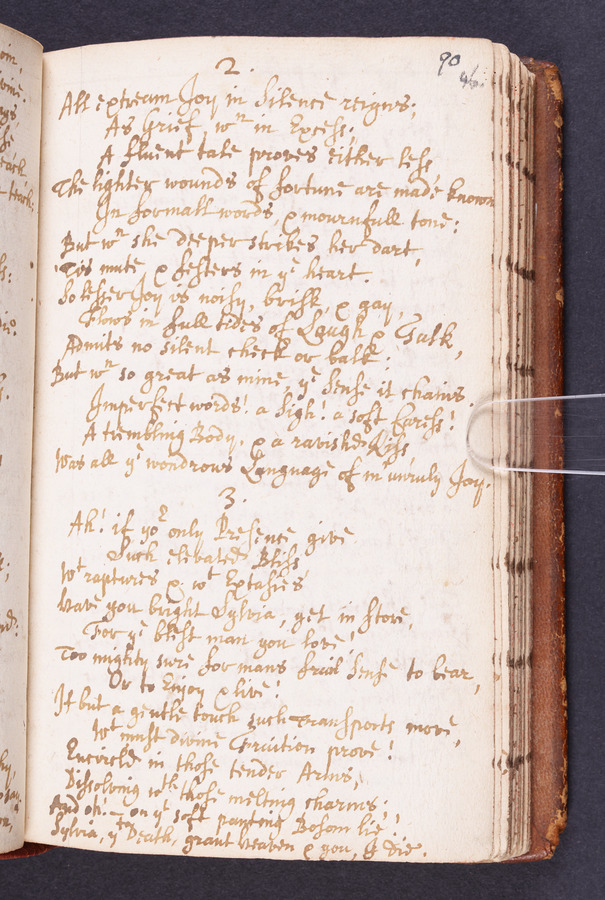 90
2.
All extream Joy in Silence reigns;
As Grief, wn in Excess;
A fluent tale proves either less
The lighter wounds of fortune are made known
In formall words, & mournfull tone;
But wn she deeper strikes her dart,
'Tis mute & festers in ye heart.
So lesser Joy is noisy, brisk & gay,
Flows in full tides of Laugh & Talk,
Admits no silent check or balk;
But wn so great as mine, ye Sense it chains.
Imperfect words! a Sigh! a soft Caress!
A trembling Body, & a ravish'd Kiss,
Was all ye wondrows Language of my unruly Joy.
3.
Ah! if yor only Presence give
Such elevated Bliss
Wt raptures & wt Extasies
Have you bright Sylvia, get in store,
For ye blest man you love!
Too mighty sure for mans frail Sense to bear,
Or to Enjoy & live!
If but a gentle touch such Transports move,
Wt must divine Fruition prove!
Encircled in those tender Arms,
Dissolving wth those melting charms;
And oh! on yt soft panting Bosom lie!
Sylvia, yn Death, grant heaven & you, & die.